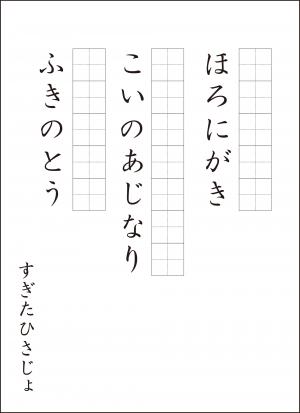 ほろにがき
こいのあじなり
ふきのとう
すぎたひさじょ